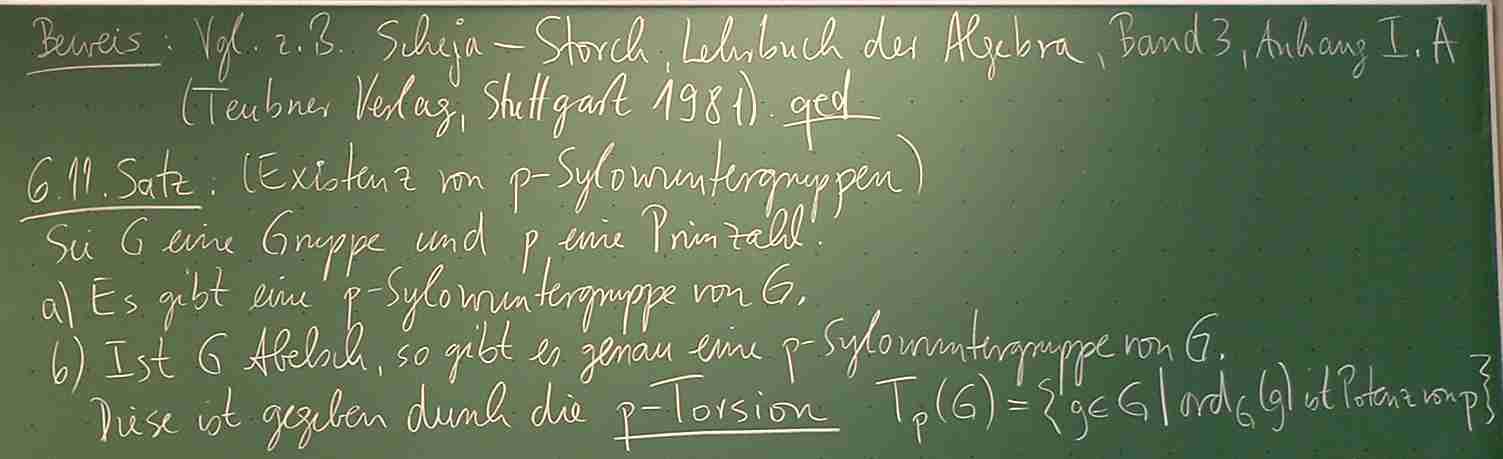 Beweis: Vgl. z.B. Scheja – Storch, Lehrbuch der Algebra, Band 3, Anhang I.A
(Teubner Verlag, Stuttgart 1981). qed
6.11. Satz: (Existenz von p-Sylowuntergruppen)
Sei G eine Gruppe und p eine Primzahl.
a) Es gibt eine p-Sylowuntergruppe von G.
b) Ist G Abelsch, so gibt es genau eine p-Sylowuntergruppe von G.
Diese ist gegeben durch die p-Torsion T_p(G) = {g ∈ G | ord_G(g) ist Potenz von p}